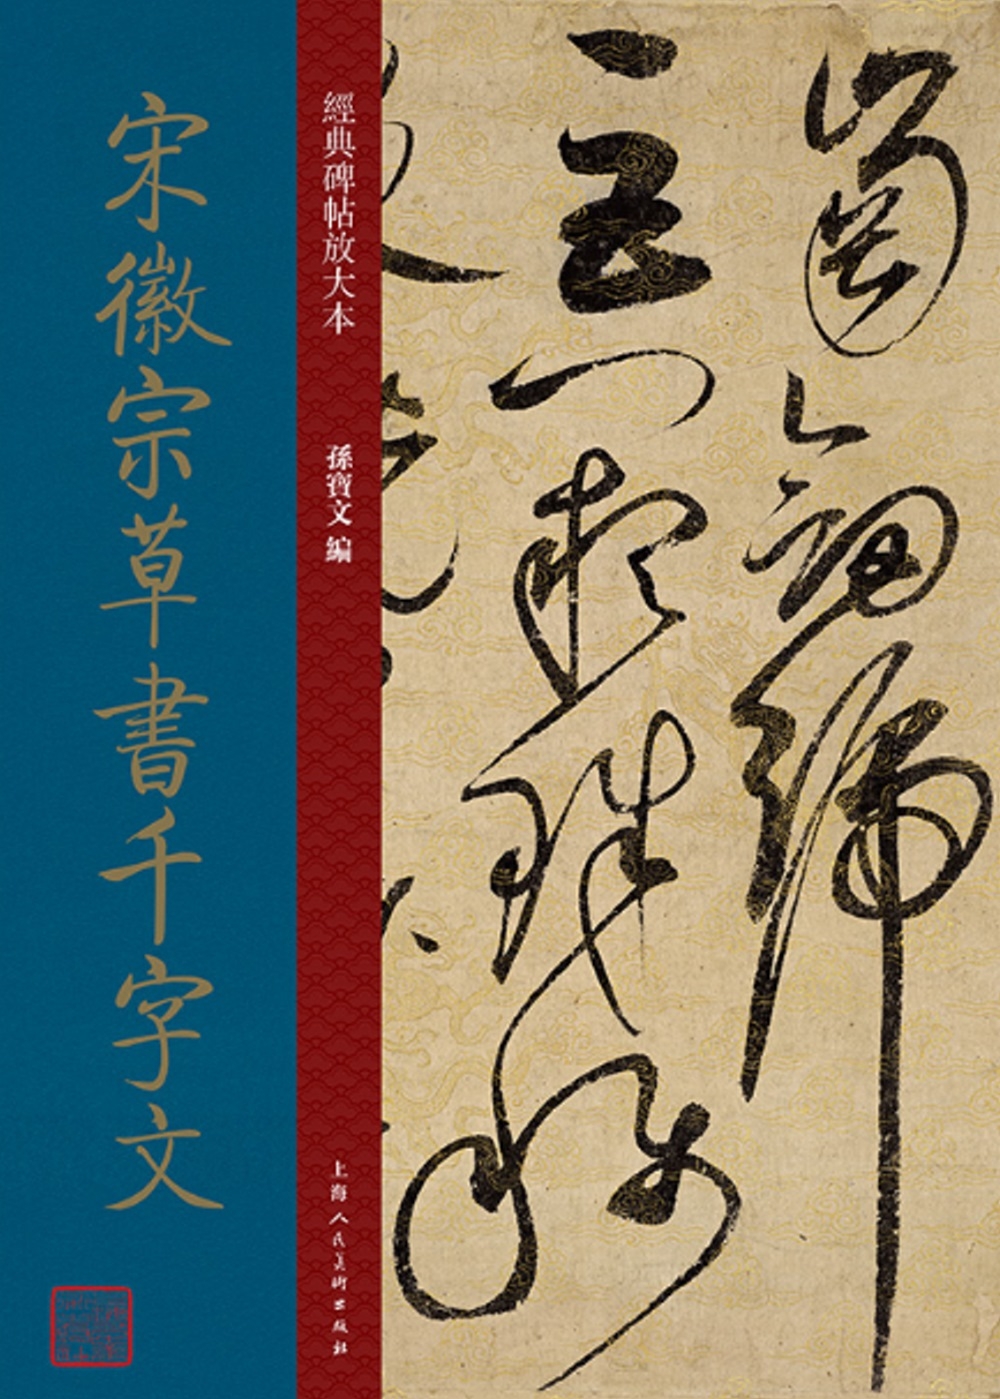 宋徽宗草書千字文
經典碑帖放大本
孫寶文 編
上海人民美術出版社
岡劍號
巨闕珠稱